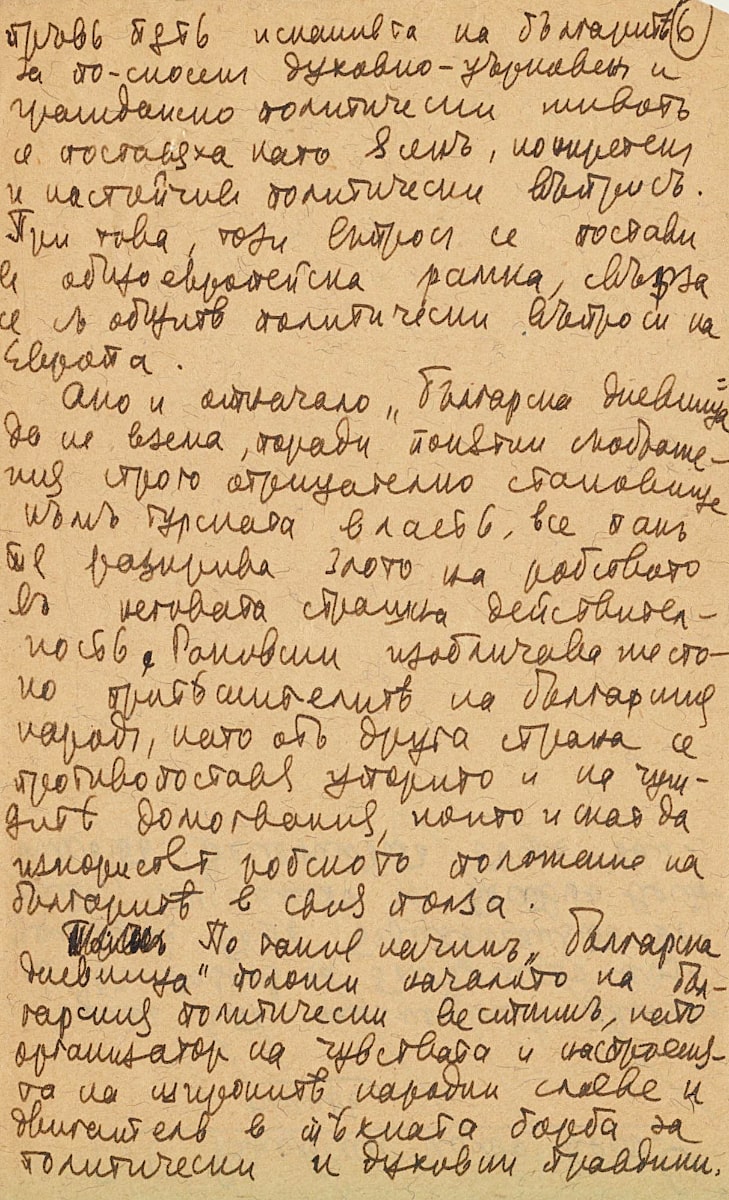 пръвъ пѫть исканията на българитѣ 6
за по-сносенъ духовно-църковенъ и
граждански политически животъ
се поставяха като ясенъ, конкретенъ
и настойчивъ политически въпросъ.
При това, този въпросъ се постави
в общоевропейска рамка, свърза
се съ общитѣ политически въпроси на
Европа.
Ако и отначало „Българска дневница"
да не взема, поради понятни съображе-
ния строго отрицателно становище
къмъ турската власть, все пакъ
тя разкрива злото на робството
въ неговата страшна действител-
ность. Раковски изобличава жесто-
ко притѣснителитѣ на българския
народъ, като отъ друга страна се
противопоставя упорито и на чуж-
дитѣ домогвания, които искат да
използват робското положение на
българитѣ в своя полза.
По такъв начинъ „Българска
дневница" положи началото на бъл-
гарския политически вестникъ, като
организатор на чувствата и настроения-
та на широкитѣ народни слоеве и
двигатель в тѣхната борба за
политически и духовни правдини.